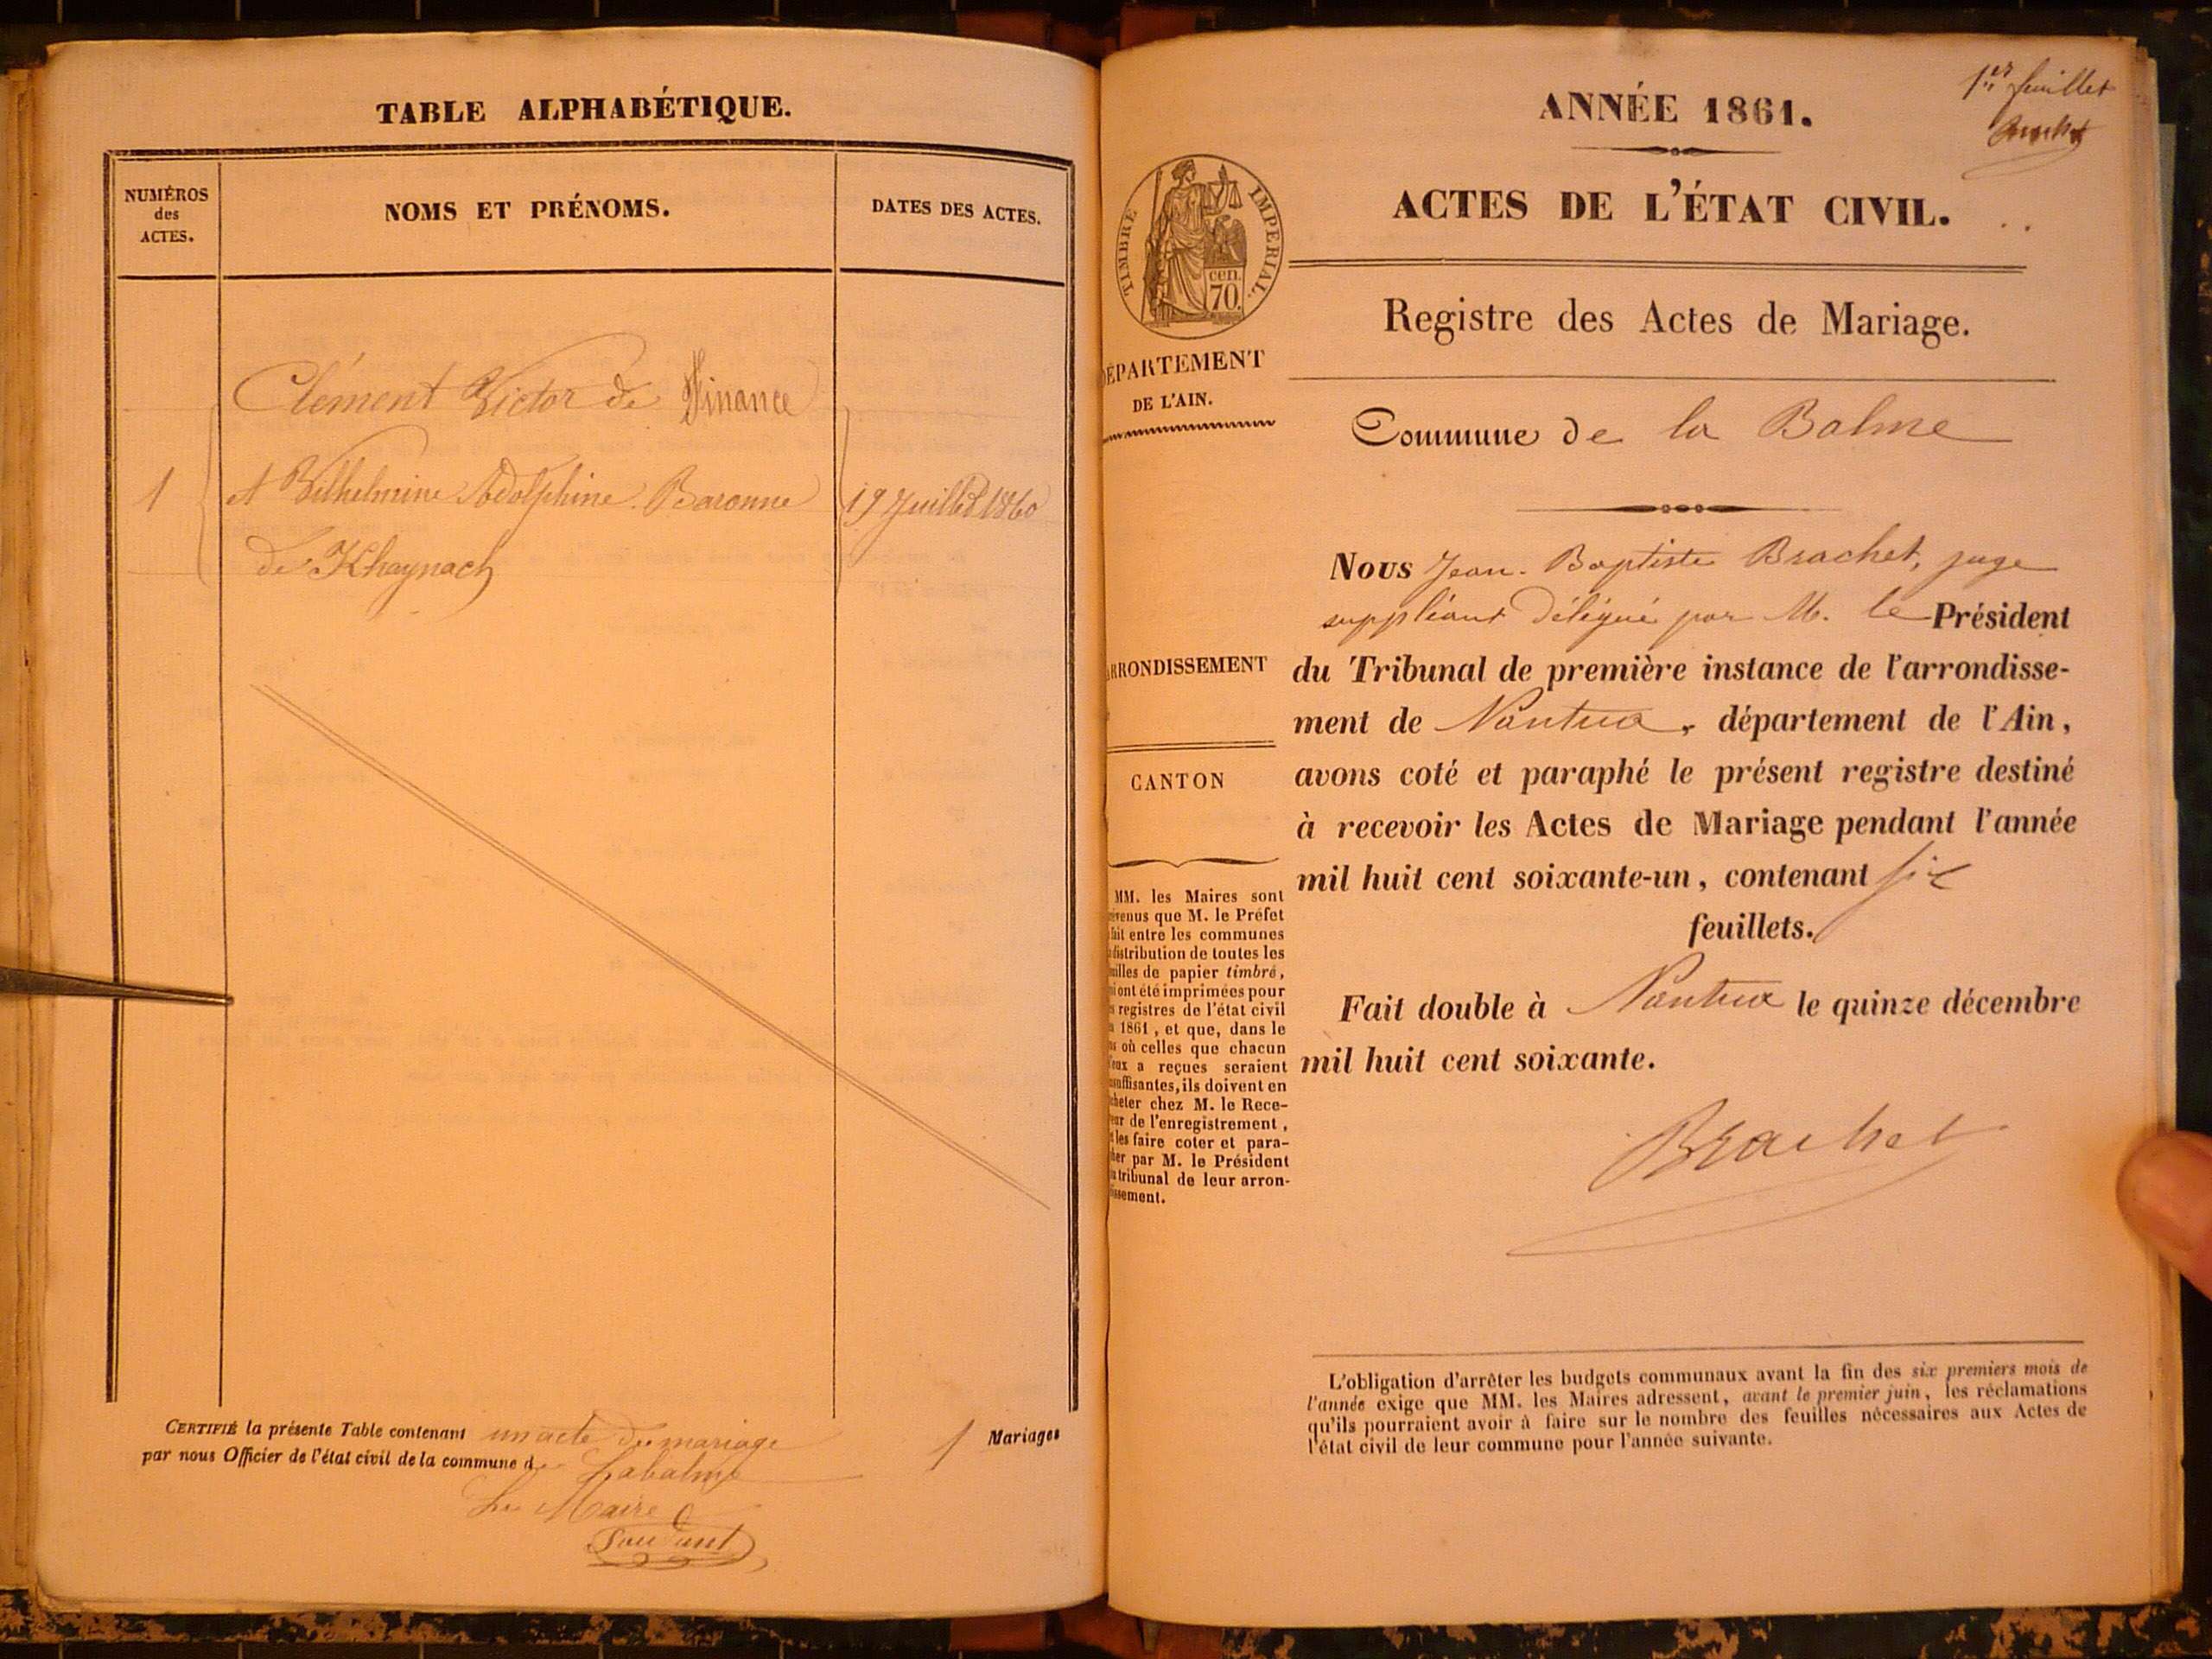 TABLE ALPHABÉTIQUE.
NUMÉROS
des
ACTES.
NOMS ET PRÉNOMS.
DATES DES ACTES.
Clément Victor de Finance
1
et Wilhelmine Adolphine Baronne
19 Juillet 1860
de Khaynach
CERTIFIÉ la présente Table contenant un acte de mariage
1 Mariages
par nous Officier de l'état civil de la commune de Labalme
Le Maire
1er feuillet
Brachet
ANNÉE 1861.
ACTES DE L'ÉTAT CIVIL.
TIMBRE IMPERIAL.
cen.
70.
Registre des Actes de Mariage.
DÉPARTEMENT
DE L'AIN.
Commune de la Balme
Nous Jean-Baptiste Brachet, juge
suppléant délégué par M. le Président
ARRONDISSEMENT
du Tribunal de première instance de l'arrondisse-
ment de Nantua, département de l'Ain,
CANTON
avons coté et paraphé le présent registre destiné
à recevoir les Actes de Mariage pendant l'année
mil huit cent soixante-un, contenant six
feuillets.
Fait double à Nantua le quinze décembre
mil huit cent soixante.
Brachet
MM. les Maires sont
évenus que M. le Préfet
fait entre les communes
distribution de toutes les
uilles de papier timbré,
ui ont été imprimées pour
s registres de l'état civil
n 1861, et que, dans le
as où celles que chacun
'eux a reçues seraient
suffisantes, ils doivent en
cheter chez M. le Rece-
eur de l'enregistrement,
t les faire coter et para-
her par M. le Président
u tribunal de leur arron-
issement.
L'obligation d'arrêter les budgets communaux avant la fin des six premiers mois de
l'année exige que MM. les Maires adressent, avant le premier juin, les réclamations
qu'ils pourraient avoir à faire sur le nombre des feuilles nécessaires aux Actes de
l'état civil de leur commune pour l'année suivante.